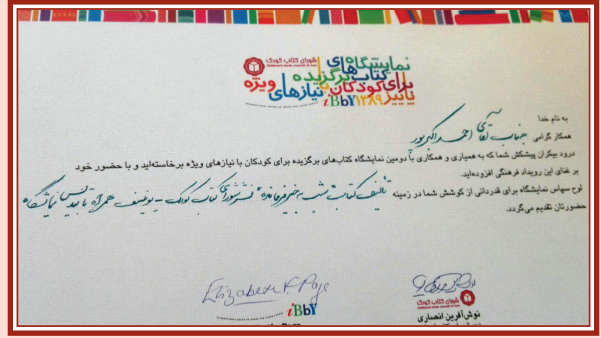 شورای کتاب کودک
نمایشگاه
کتاب‌های
برگزیده
برای کودکان با
نیازهای ویژه
پاییز ۱۳۸۹
iBbY
به نام خدا
همکار گرامی جناب آقای احمد اکبرپور
درود بیکران پیشکش شما که به همیاری و همکاری با دومین نمایشگاه کتاب‌های برگزیده برای کودکان با نیازهای ویژه برخاسته‌اید و با حضور خود
بر غنای این رویداد فرهنگی افزوده‌اید.
لوح سپاس نمایشگاه برای قدردانی از کوشش شما در زمینه تألیف کتاب "شب بخیر فرمانده" نشر شورای کتاب کودک - یونیسف همراه با تندیس نمایشگاه
حضورتان تقدیم می‌گردد.
Elizabeth F Page
iBbY
شورای کتاب کودک
نوش‌آفرین انصاری